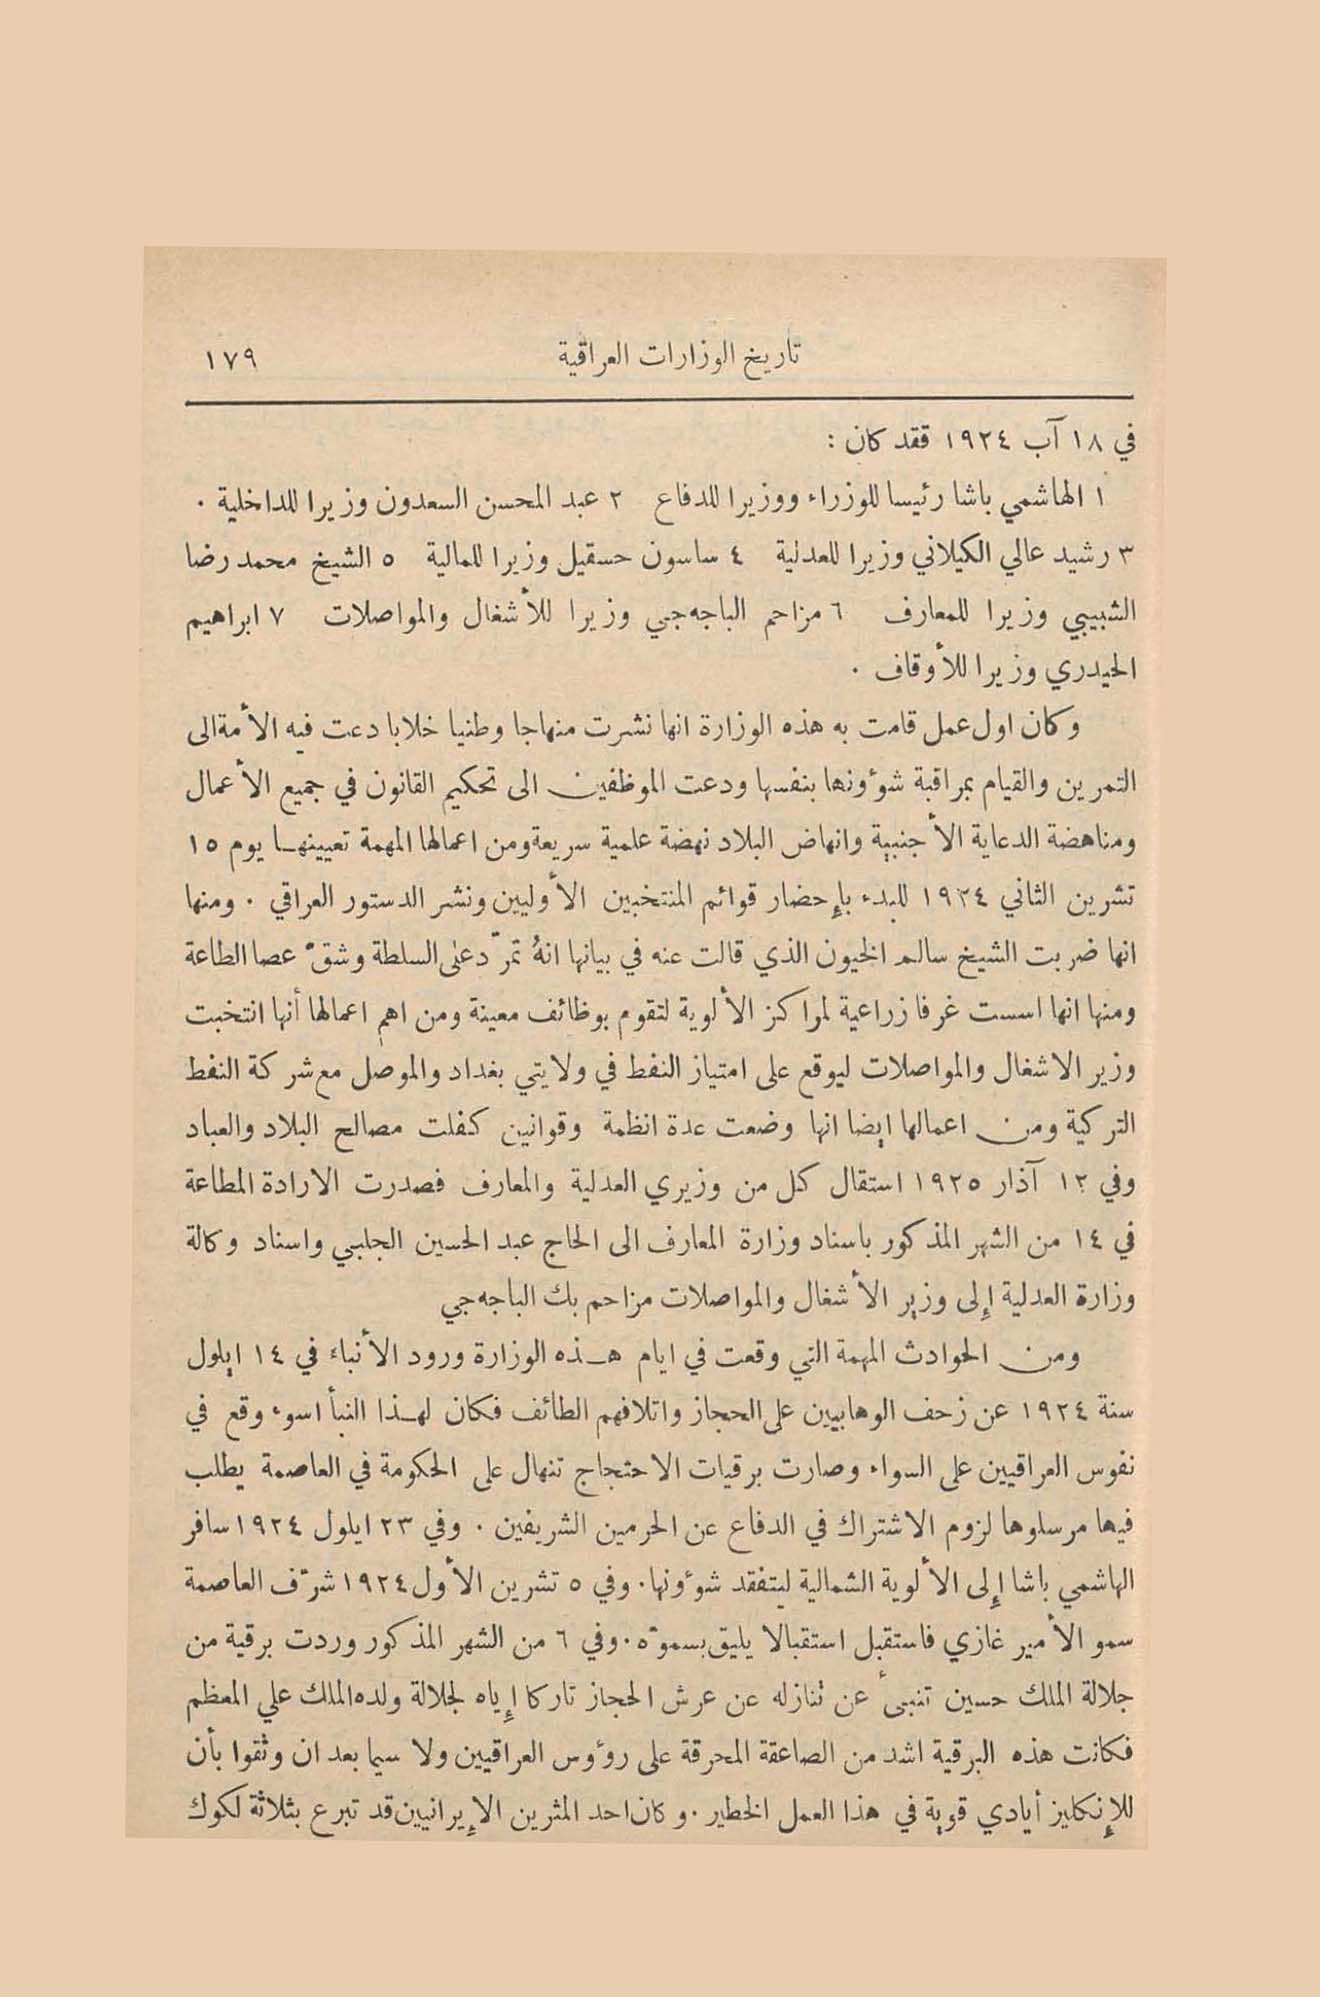 تاريخ الوزارات العراقية ١٧٩
في ١٨ آب ١٩٢٤ ققد كان :
١ الهاشمي باشا رئيسا للوزراء ووزيرا للدفاع ٢ عبد المحسن السعدون وزيرا للداخلية .
٣ رشيد عالي الكيلاني وزيرا للعدلية ٤ ساسون حسقيل وزيرا للمالية ٥ الشيخ محمد رضا
الشبيبي وزيرا للمعارف ٦ مزاحم الباجه جي وزيرا للأشغال والمواصلات ٧ ابراهيم
الحيدري وزيرا للأوقاف .
وكان اول عمل قامت به هذه الوزارة انها نشرت منهاجا وطنيا خلابا دعت فيه الأمة الى
التمرين والقيام بمراقبة شوءونها بنفسها ودعت الموظفين الى تحكيم القانون في جميع الأعمال
ومناهضة الدعاية الأجنبية وانهاض البلاد نهضة علمية سريعة ومن اعمالها المهمة تعيينها يوم ١٥
تشرين الثاني ١٩٢٤ للبدء بإحضار قوائم المنتخبين الأوليين ونشر الدستور العراقي . ومنها
انها ضربت الشيخ سالم الخيون الذي قالت عنه في بيانها انهُ تمرّد على السلطة وشقّ عصا الطاعة
ومنها انها اسست غرفا زراعية لمراكز الألوية لتقوم بوظائف معينة ومن اهم اعمالها أنها انتخبت
وزير الاشغال والمواصلات ليوقع على امتياز النفط في ولايتي بغداد والموصل مع شركة النفط
التركية ومن اعمالها ايضا انها وضعت عدة انظمة وقوانين كفلت مصالح البلاد والعباد
وفي ١٢ آذار ١٩٢٥ استقال كل من وزيري العدلية والمعارف فصدرت الارادة المطاعة
في ١٤ من الشهر المذكور باسناد وزارة المعارف الى الحاج عبد الحسين الجلبي واسناد وكالة
وزارة العدلية إلى وزير الأشغال والمواصلات مزاحم بك الباجه جي
ومن الحوادث المهمة التي وقعت في ايام هذه الوزارة ورود الأنباء في ١٤ ايلول
سنة ١٩٢٤ عن زحف الوهابيين على الحجاز واتلافهم الطائف فكان لهذا النبأ اسوء وقع في
نفوس العراقيين على السواء وصارت برقيات الاحتجاج تنهال على الحكومة في العاصمة يطلب
فيها مرسلوها لزوم الاشتراك في الدفاع عن الحرمين الشريفين . وفي ٢٣ ايلول ١٩٢٤ سافر
الهاشمي باشا إلى الألوية الشمالية ليتفقد شوءونها . وفي ٥ تشرين الأول ١٩٢٤ شرّف العاصمة
سمو الأمير غازي فاستقبل استقبالا يليق بسموّه . وفي ٦ من الشهر المذكور وردت برقية من
جلالة الملك حسين تنبىء عن تنازله عن عرش الحجاز تاركا إياه لجلالة ولده الملك علي المعظم
فكانت هذه البرقية اشد من الصاعقة المحرقة على روءوس العراقيين ولا سيما بعد ان وثقوا بأن
للإنكليز أيادي قوية في هذا العمل الخطير . وكان احد المثرين الإيرانيين قد تبرع بثلاثة لكوك